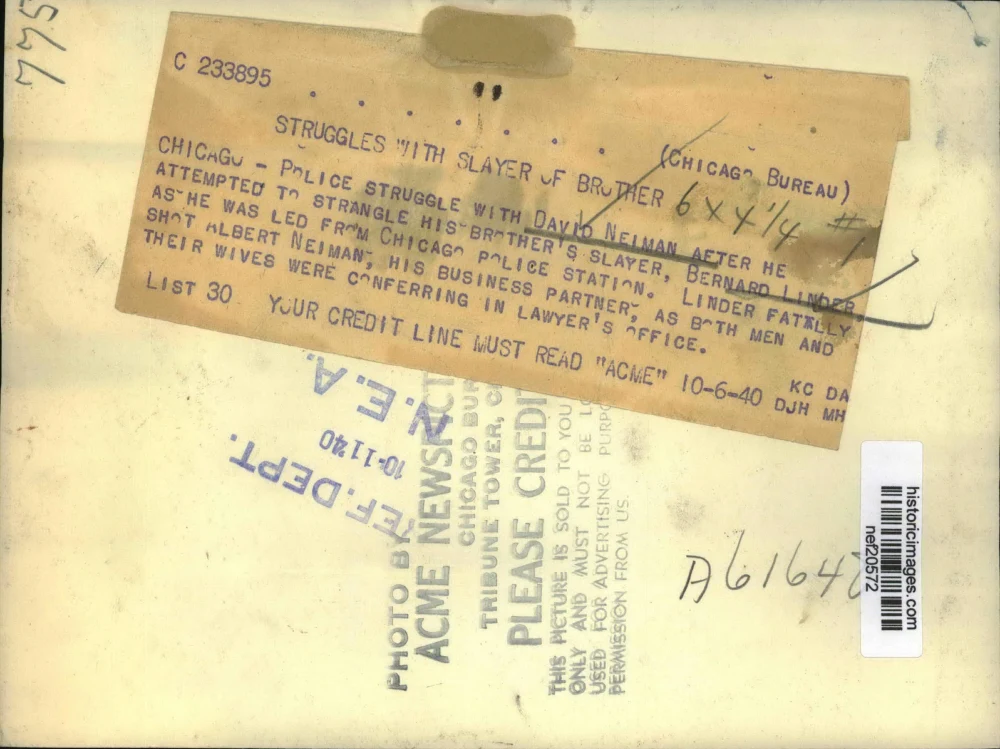 775
C 233895
(CHICAGO BUREAU)
STRUGGLES WITH SLAYER OF BROTHER
6 x 4 1/4 # 1
CHICAGO - POLICE STRUGGLE WITH DAVID NEIMAN AFTER HE
ATTEMPTED TO STRANGLE HIS BROTHER'S SLAYER, BERNARD LINDER,
AS HE WAS LED FROM CHICAGO POLICE STATION. LINDER FATALLY
SHOT ALBERT NEIMAN, HIS BUSINESS PARTNER, AS BOTH MEN AND
THEIR WIVES WERE CONFERRING IN LAWYER'S OFFICE.
LIST 30
KC DA
YOUR CREDIT LINE MUST READ "ACME" 10-6-40 DJH MH
N.E.A.
10-11-40
EF. DEPT.
PHOTO BY
ACME NEWSPICT
CHICAGO BUR
TRIBUNE TOWER,
PLEASE CREDI
THIS PICTURE IS SOLD TO YOU
ONLY AND MUST NOT BE LO
USED FOR ADVERTISING PURPO
PERMISSION FROM US.
A6164
historicimages.com
nef20572